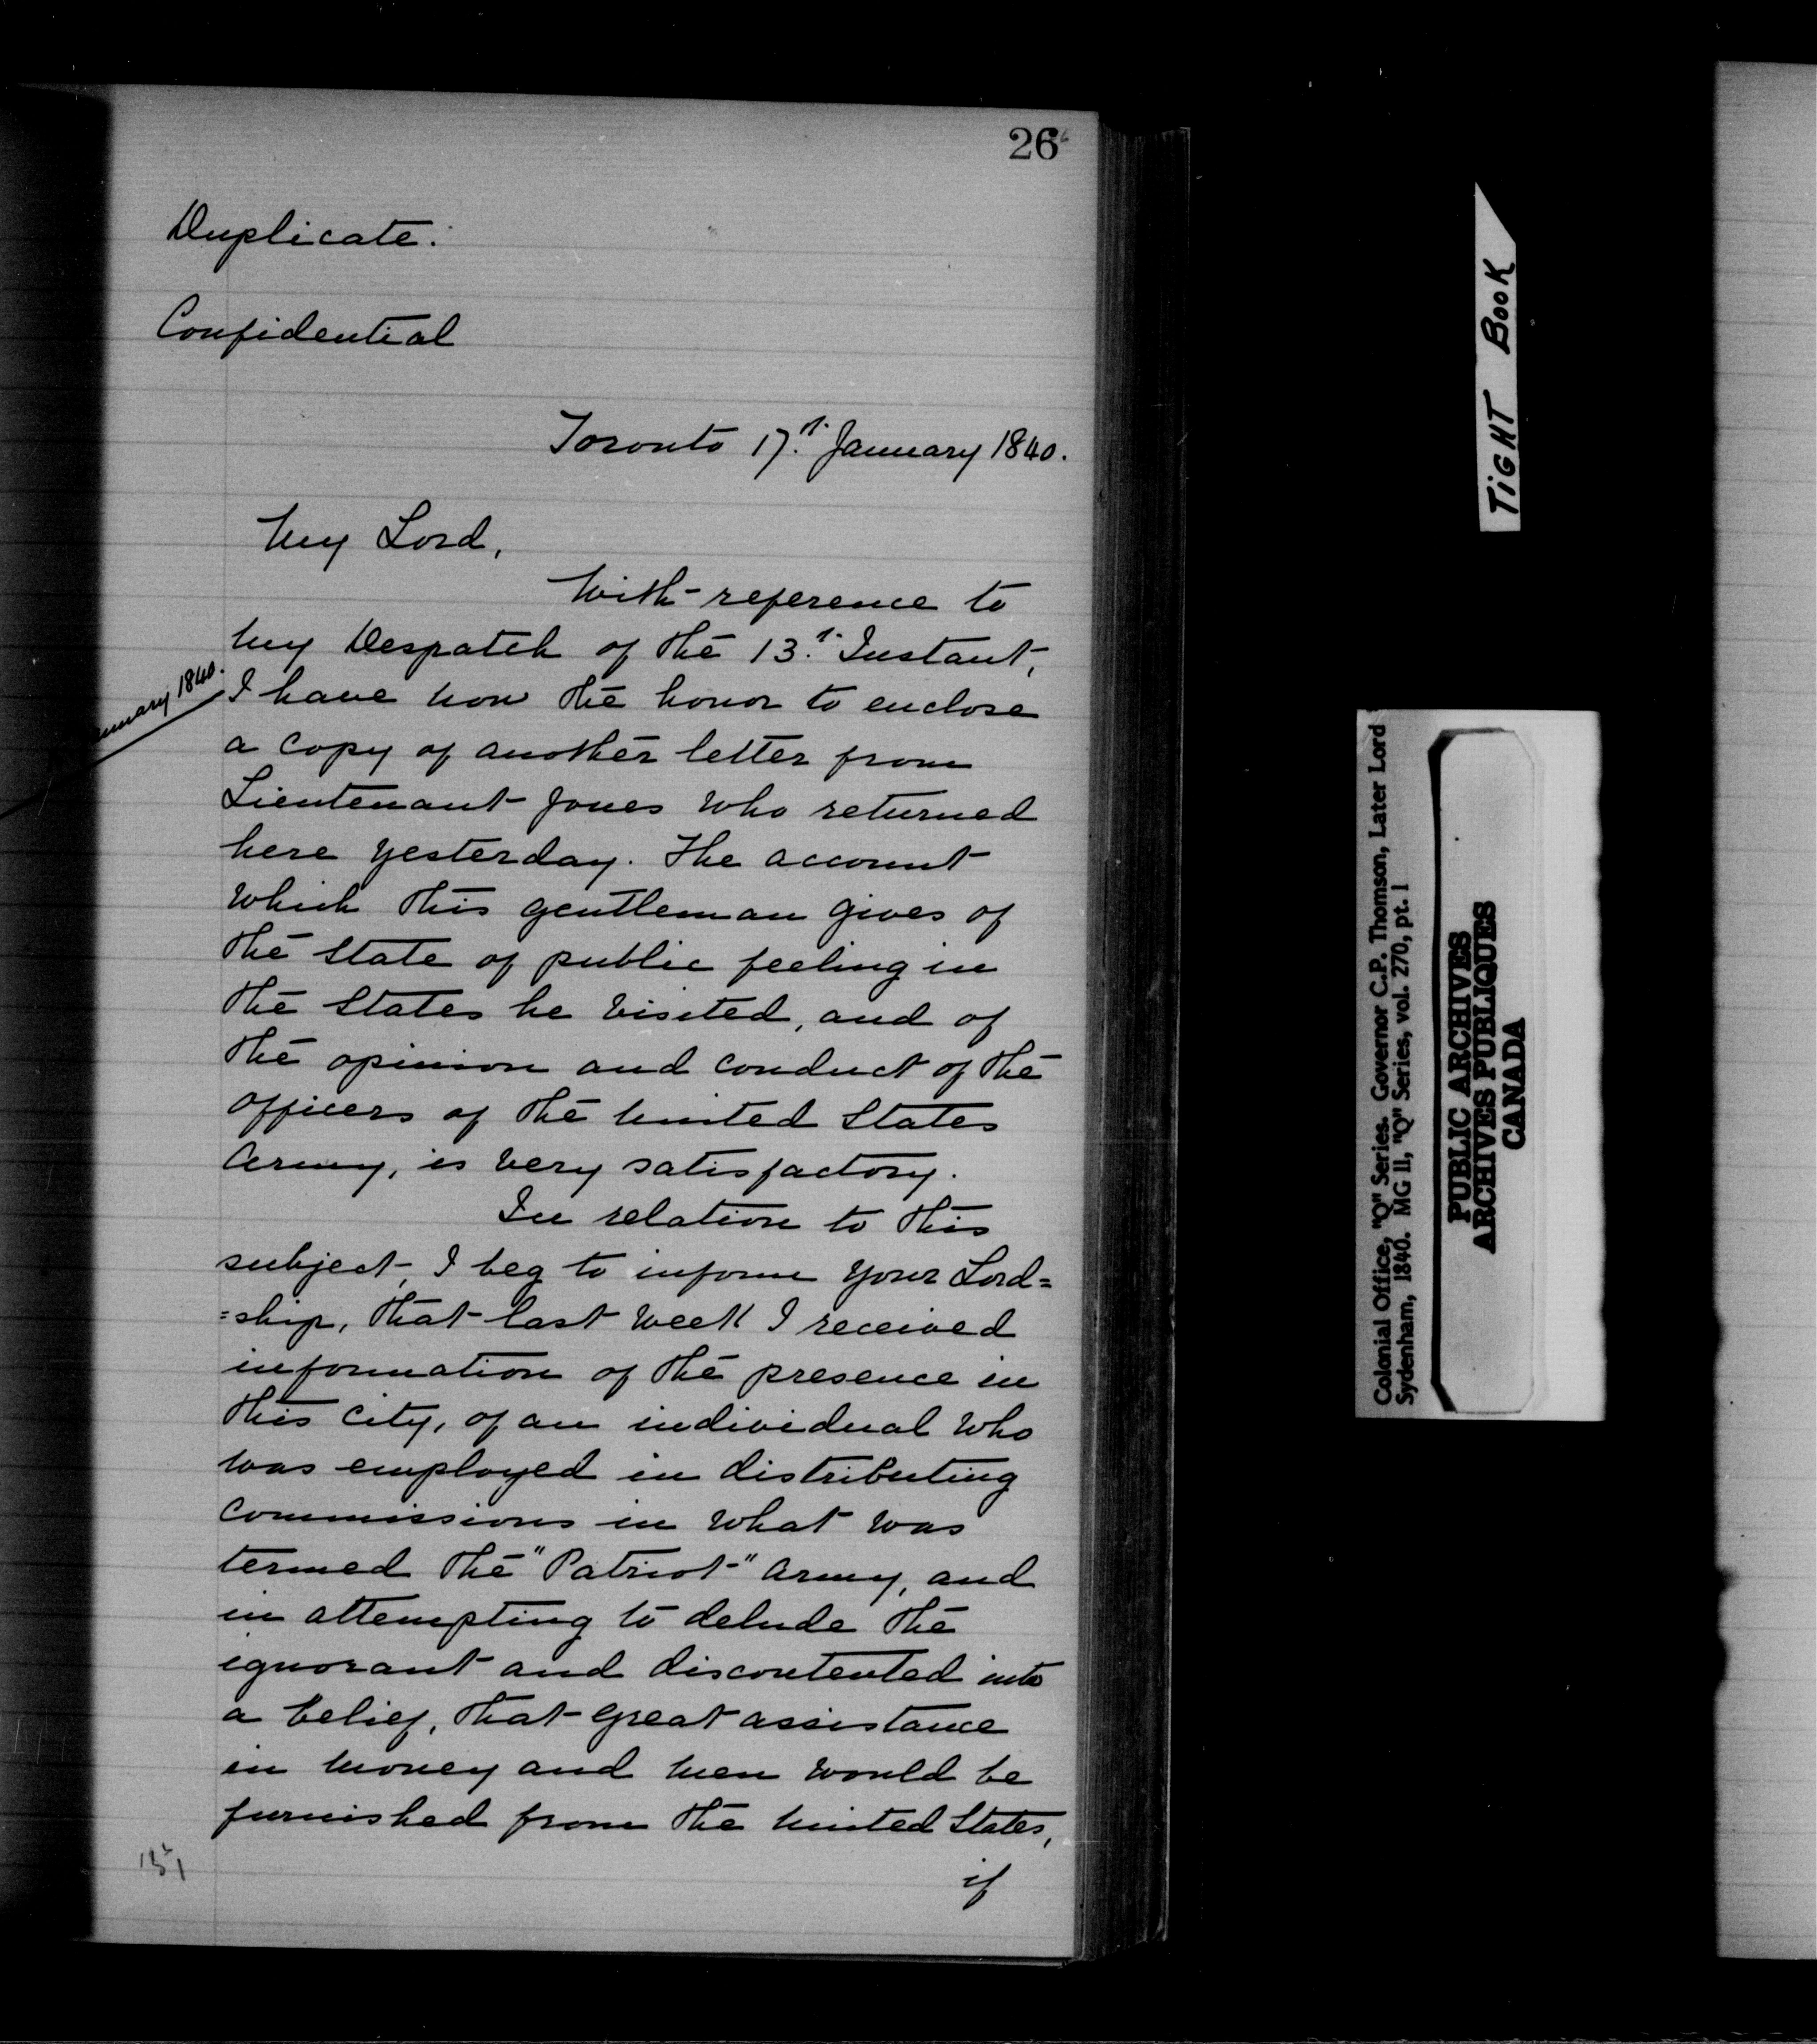 26
Duplicate.
Confidential
Toronto 17th January 1840.
My Lord,
With reference to
my Despatch of the 13th Instant,
I have now the honor to enclose
a copy of another letter from
Lieutenant Jones who returned
here yesterday. The account
which this gentleman gives of
the state of public feeling in
the States he visited, and of
the opinion and conduct of the
officers of the United States
Army, is very satisfactory.
In relation to this
subject, I beg to inform your Lord=
=ship, that last week I received
information of the presence in
this city, of an individual who
was employed in distributing
commissions in what was
termed the "Patriot" Army, and
in attempting to delude the
ignorant and discontented into
a belief, that great assistance
in money and men would be
furnished from the United States,
if
1840.
TIGHT BOOK
Colonial Office, "Q" Series. Governor C.P. Thomson, Later Lord
Sydenham, 1840. MG 11, "Q" Series, vol. 270, pt. 1
PUBLIC ARCHIVES
ARCHIVES PUBLIQUES
CANADA